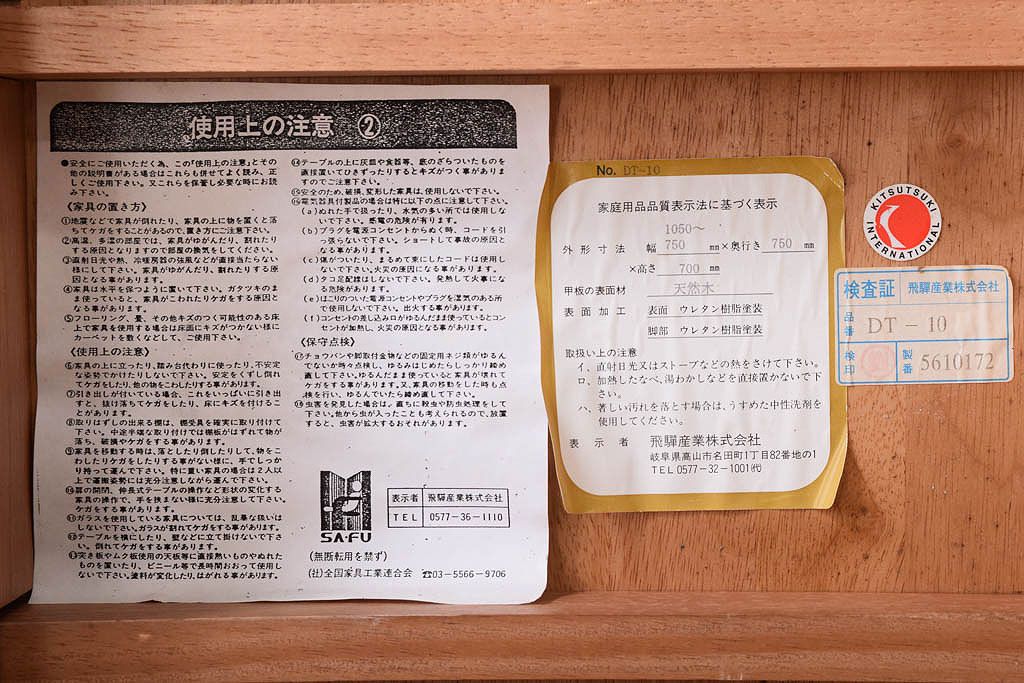 使用上の注意 ②
●安全にご使用いただく為、この「使用上の注意」とその
他の説明書がある場合はこれらも併せてよく読み、正
しくご使用下さい。又これらを保管し必要な時にお読
み下さい。
〈家具の置き方〉
①地震などで家具が倒れたり、家具の上に物を置くと落
ちてケガをすることがあるので、置き方にご注意下さい。
②高温、多湿の部屋では、家具がゆがんだり、割れたり
する原因となりますので部屋の換気をしてください。
③直射日光や熱、冷暖房器の強風などが直接当たらない
様にして下さい。家具がゆがんだり、割れたりする原
因となる事があります。
④家具は水平を保つように置いて下さい。ガタツキのま
まで使っていると、家具がこわれたりケガをする原因と
なる事があります。
⑤フローリング、畳、その他キズのつく可能性のある床
上で家具を使用する場合は床面にキズがつかない様に
カーペットを敷くなどして、ご使用下さい。
〈使用上の注意〉
⑥家具の上に立ったり、踏み台代わりに使ったり、不安定
な姿勢でかけたりしないで下さい。安定をくずし倒れ
てケガをしたり、他の物をこわしたりする事があります。
⑦引き出しが付いている場合、これをいっぱいに引き出
すと、抜け落ちてケガをしたり、床にキズを付けるこ
とがあります。
⑧取りはずしの出来る棚は、棚受具を確実に取り付けて
下さい。中途半端な取り付けでは棚板がはずれて物が
落ち、破損やケガをする事があります。
⑨家具を移動する時は、落としたり倒したりして、物をこ
わしたりケガをしたりする事がない様に、手でしっか
り持って運んで下さい。特に重い家具の場合は2人以上
で運搬姿勢には充分注意しながら運んで下さい。
⑩扉の開閉、伸長式テーブルの操作など形状の変化する
家具の操作で、手を挟まない様に充分注意して下さい。
ケガをする事があります。
⑪ガラスを使用している家具については、乱暴な扱いは
しないで下さい。ガラスが割れてケガをする事があります。
⑫テーブルを横にしたり、壁などに立て掛けないで下さ
い。倒れてケガをする事があります。
⑬突き板やムク板使用の天板等に直接熱いものやぬれた
ものを置いたり、ビニール等で長時間おおって使用し
ないで下さい。塗料が変化したり、はがれる事があります。
⑭テーブルの上に灰皿や食器等、底のざらついたものを
直接置いてひきずったりするとキズがつく事がありま
すのでご注意下さい。
⑮安全のため、破損、変形した家具は、使用しないで下さい。
⑯電気器具付製品の場合は特に以下の点に注意して下さい。
(a)ぬれた手で扱ったり、水気の多い所では使用しな
いで下さい。感電の危険が有ります。
(b)プラグを電源コンセントからぬく時、コードを引
っ張らないで下さい。ショートして事故の原因と
なる事があります。
(c)傷がついたり、まるめて束にしたコードは使用し
ないで下さい。火災の原因になる事があります。
(d)タコ足配線はしないで下さい。発熱して火事にな
る危険があります。
(e)ほこりのついた電源コンセントやプラグを湿気のある所
で使用しないで下さい。出火する事があります。
(f)コンセントの差し込み口がゆるんだまま使っているとコン
セントが加熱し、火災の原因となる事があります。
〈保守点検〉
⑰チョウバンや脚取付金物などの固定用ネジ類がゆるん
でないか時々点検し、ゆるみはじめたらしっかり締め
直して下さい。ゆるんだまま使っていると家具が壊れて
ケガをする事があります。又、家具の移動をした時も点
検を行い、ゆるんでいたら締め直して下さい。
⑱虫害を発見した場合は、直ちに殺虫や防虫処理をして
下さい。他から虫が入ったことも考えられるので、放置
すると、虫害が拡大するおそれがあります。
SA-FU
表示者 飛騨産業株式会社
TEL 0577-36-1110
(無断転用を禁ず)
(社)全国家具工業連合会 ☎03-5566-9706
No. DT-10
家庭用品品質表示法に基づく表示
1050～
外形寸法 幅 750 ㎜×奥行き 750 ㎜
×高さ 700 ㎜
甲板の表面材 天然木
表面加工 表面 ウレタン樹脂塗装
脚部 ウレタン樹脂塗装
取扱い上の注意
イ、直射日光又はストーブなどの熱をさけて下さい。
ロ、加熱したなべ、湯わかしなどを直接置かないで下
さい。
ハ、著しい汚れを落とす場合は、うすめた中性洗剤を
使用してください。
表示者 飛騨産業株式会社
岐阜県高山市名田町1丁目82番地の1
TEL 0577-32-1001㈹
KITSUTSUKI
INTERNATIONAL
検査証 飛騨産業株式会社
品番 DT-10
検印 製番 5610172